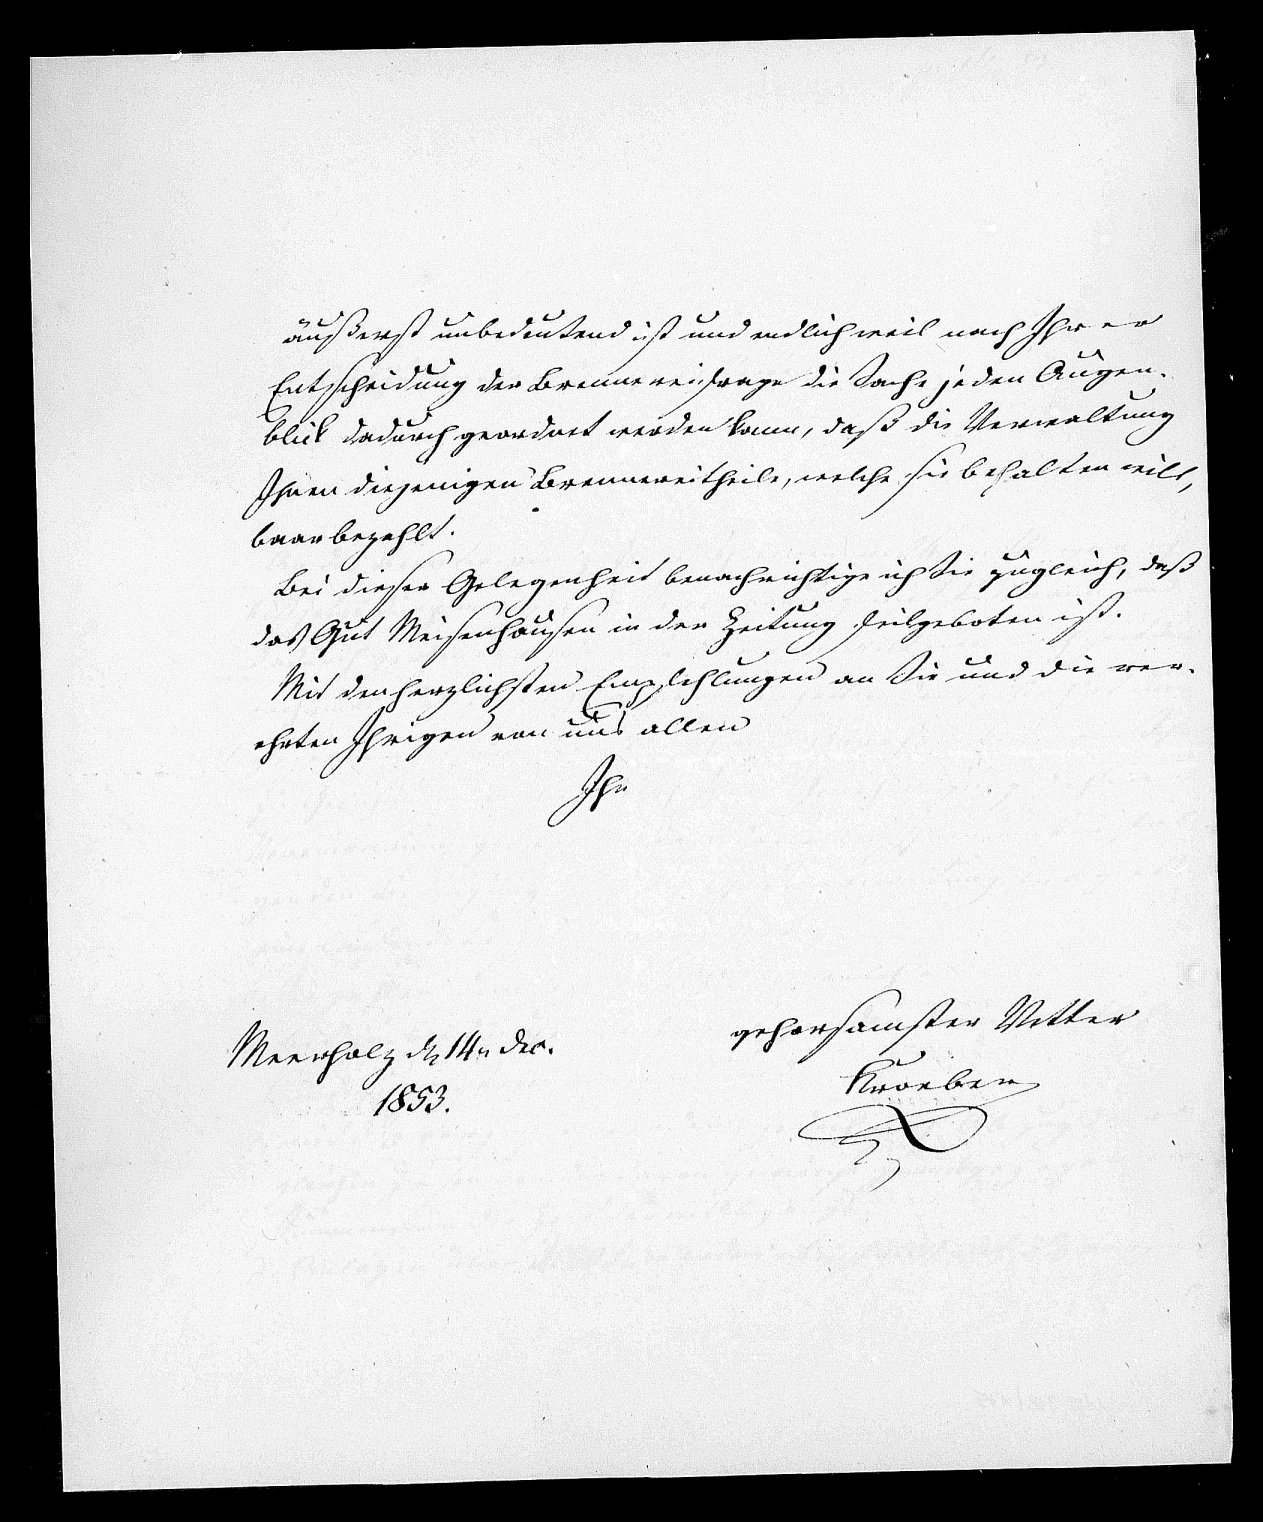 äußerst unbedeutend ist und endlich weil nach Ihrer
Entscheidung der Brennereifrage die Sache jeden Augen-
blick dadurch geordnet werden kann, daß die Verwaltung
Ihnen diejenigen Brennereitheile, welche sie behalten will,
baar bezahlt.
Bei dieser Gelegenheit benachrichtige ich Sie zugleich, daß
das Gut Meisenhausen in der Zeitung feilgeboten ist.
Mit den herzlichsten Empfehlungen an Sie und die ver-
ehrten Ihrigen von uns allen
Ihr
gehorsamster Vetter
Kroeber
Meerholz d. 14n Dec.
1853.